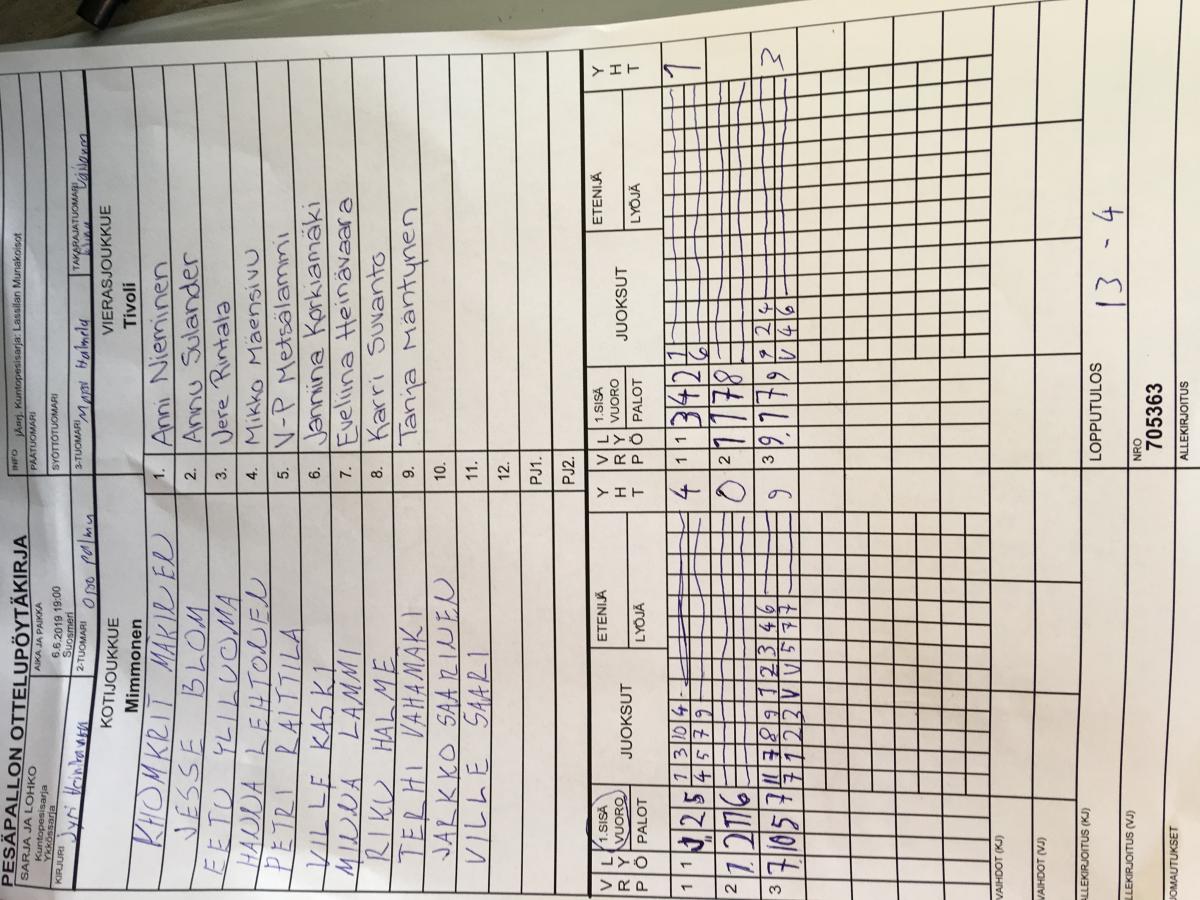 PESÄPALLON OTTELUPÖYTÄKIRJA
SARJA JA LOHKO
Kuntopesisarja
Ykkössarja
AIKA JA PAIKKA
6.6.2019 19:00
Suosmeri
INFO jÄrj. Kuntopesisarja: Lassilan Munakoisot
PÄÄTUOMARI
SYÖTTÖTUOMARI
KIRJURI Jyri
2-TUOMARI Opo Palmu
3-TUOMARI Manni Halmela
TAKARAJATUOMARI
KOTIJOUKKUE
Mimmonen
VIERASJOUKKUE
Tivoli
KHOMKRIT MÄKINEN 1. Anni Nieminen
JESSE BLOM 2. Annu Sulander
EETU YLILUOMA 3. Jere Rintala
HANNA LEHTONEN 4. Mikko Mäensivu
PETRI RAITTILA 5. V-P Metsälammi
VILLE KASKI 6. Janniina Korkiamäki
MINNA LAMMI 7. Eveliina Heinävaara
RIKU HALME 8. Karri Suvanto
TERHI VAHAMÄKI 9. Tanja Mäntynen
JARKKO SAARINEN 10.
VILLE SAARI 11.
12.
PJ1.
PJ2.
V R P L Y Ö 1.SISÄ VUORO PALOT JUOKSUT ETENIJÄ LYÖJÄ Y H T V R P L Y Ö 1.SISÄ VUORO PALOT JUOKSUT ETENIJÄ LYÖJÄ Y H T
1 1 2 5 1 3 10 4 4 1 1 3 4 2 1 1
4 5 7 9 6
2 1. 2 11 6 0 2 1 1 7 8
3 7. 10 5 7 11 7 8 9 1 1 2 3 4 6 9 3 9. 1 7 7 9 9 2 4 3
7 1 2 3 V V 5 7 7 V 4 6
VAIHDOT (KJ)
VAIHDOT (VJ)
ALLEKIRJOITUS (KJ) LOPPUTULOS 13 - 4
ALLEKIRJOITUS (VJ) NRO
705363
HUOMAUTUKSET ALLEKIRJOITUS